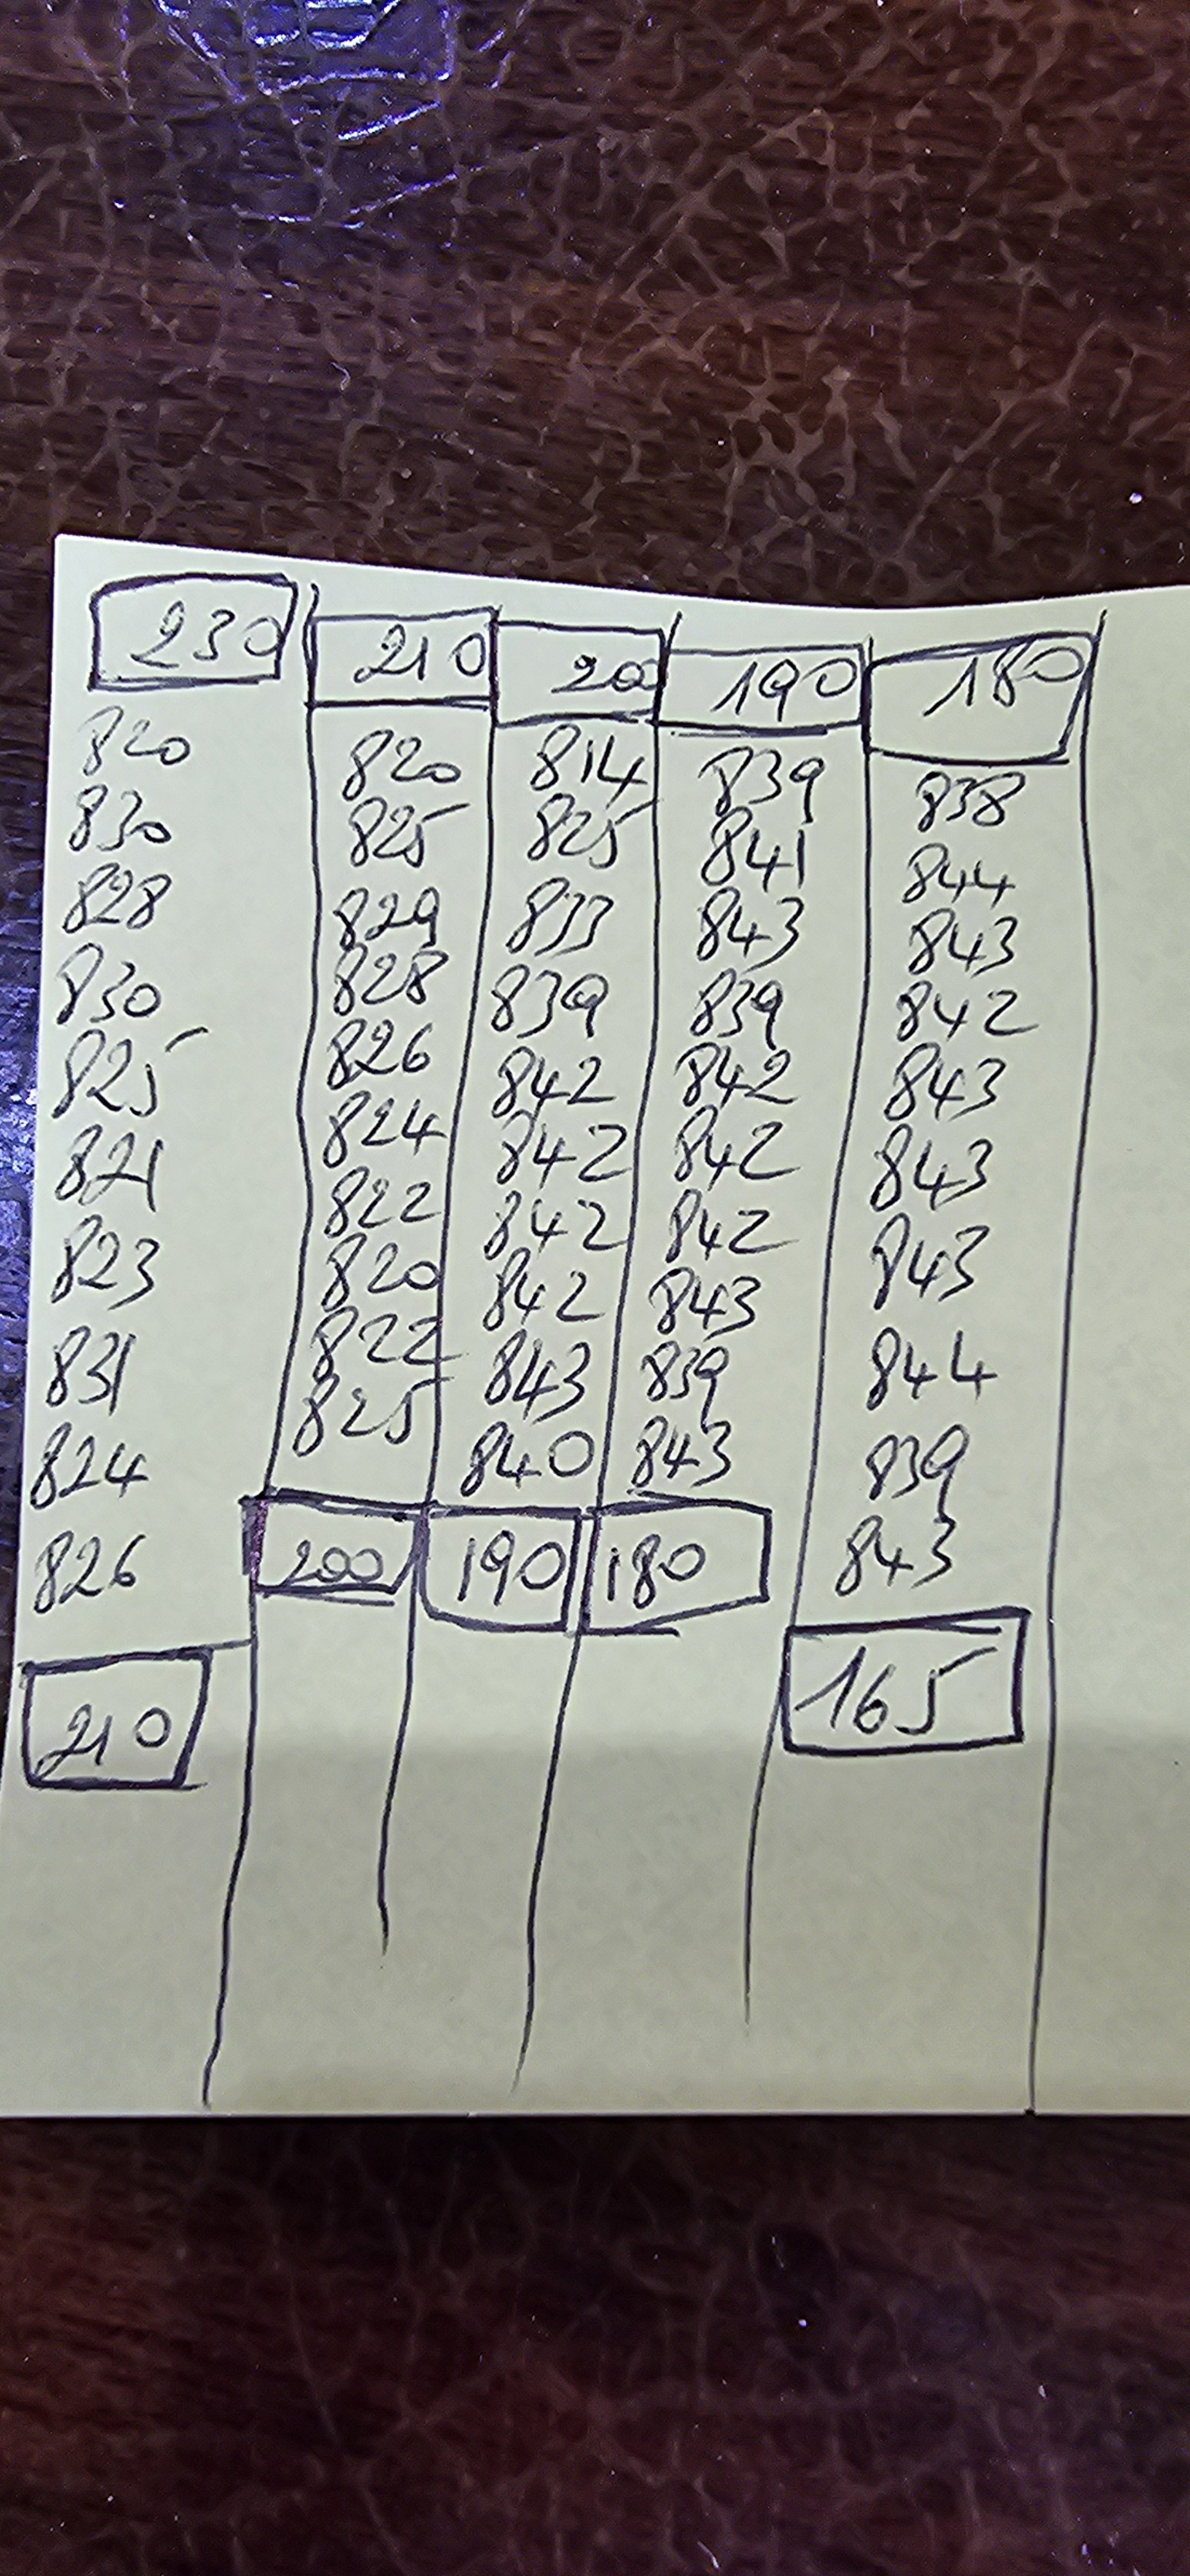 230 210 200 190 180
820 820 814 839 838
830 825 825 841 844
828 829 833 843 843
830 828 839 839 842
825 826 842 842 843
821 824 842 842 843
823 822 842 842 843
831 820 842 843 844
824 822 843 839 839
826 825 840 843 843
210 200 190 180 165